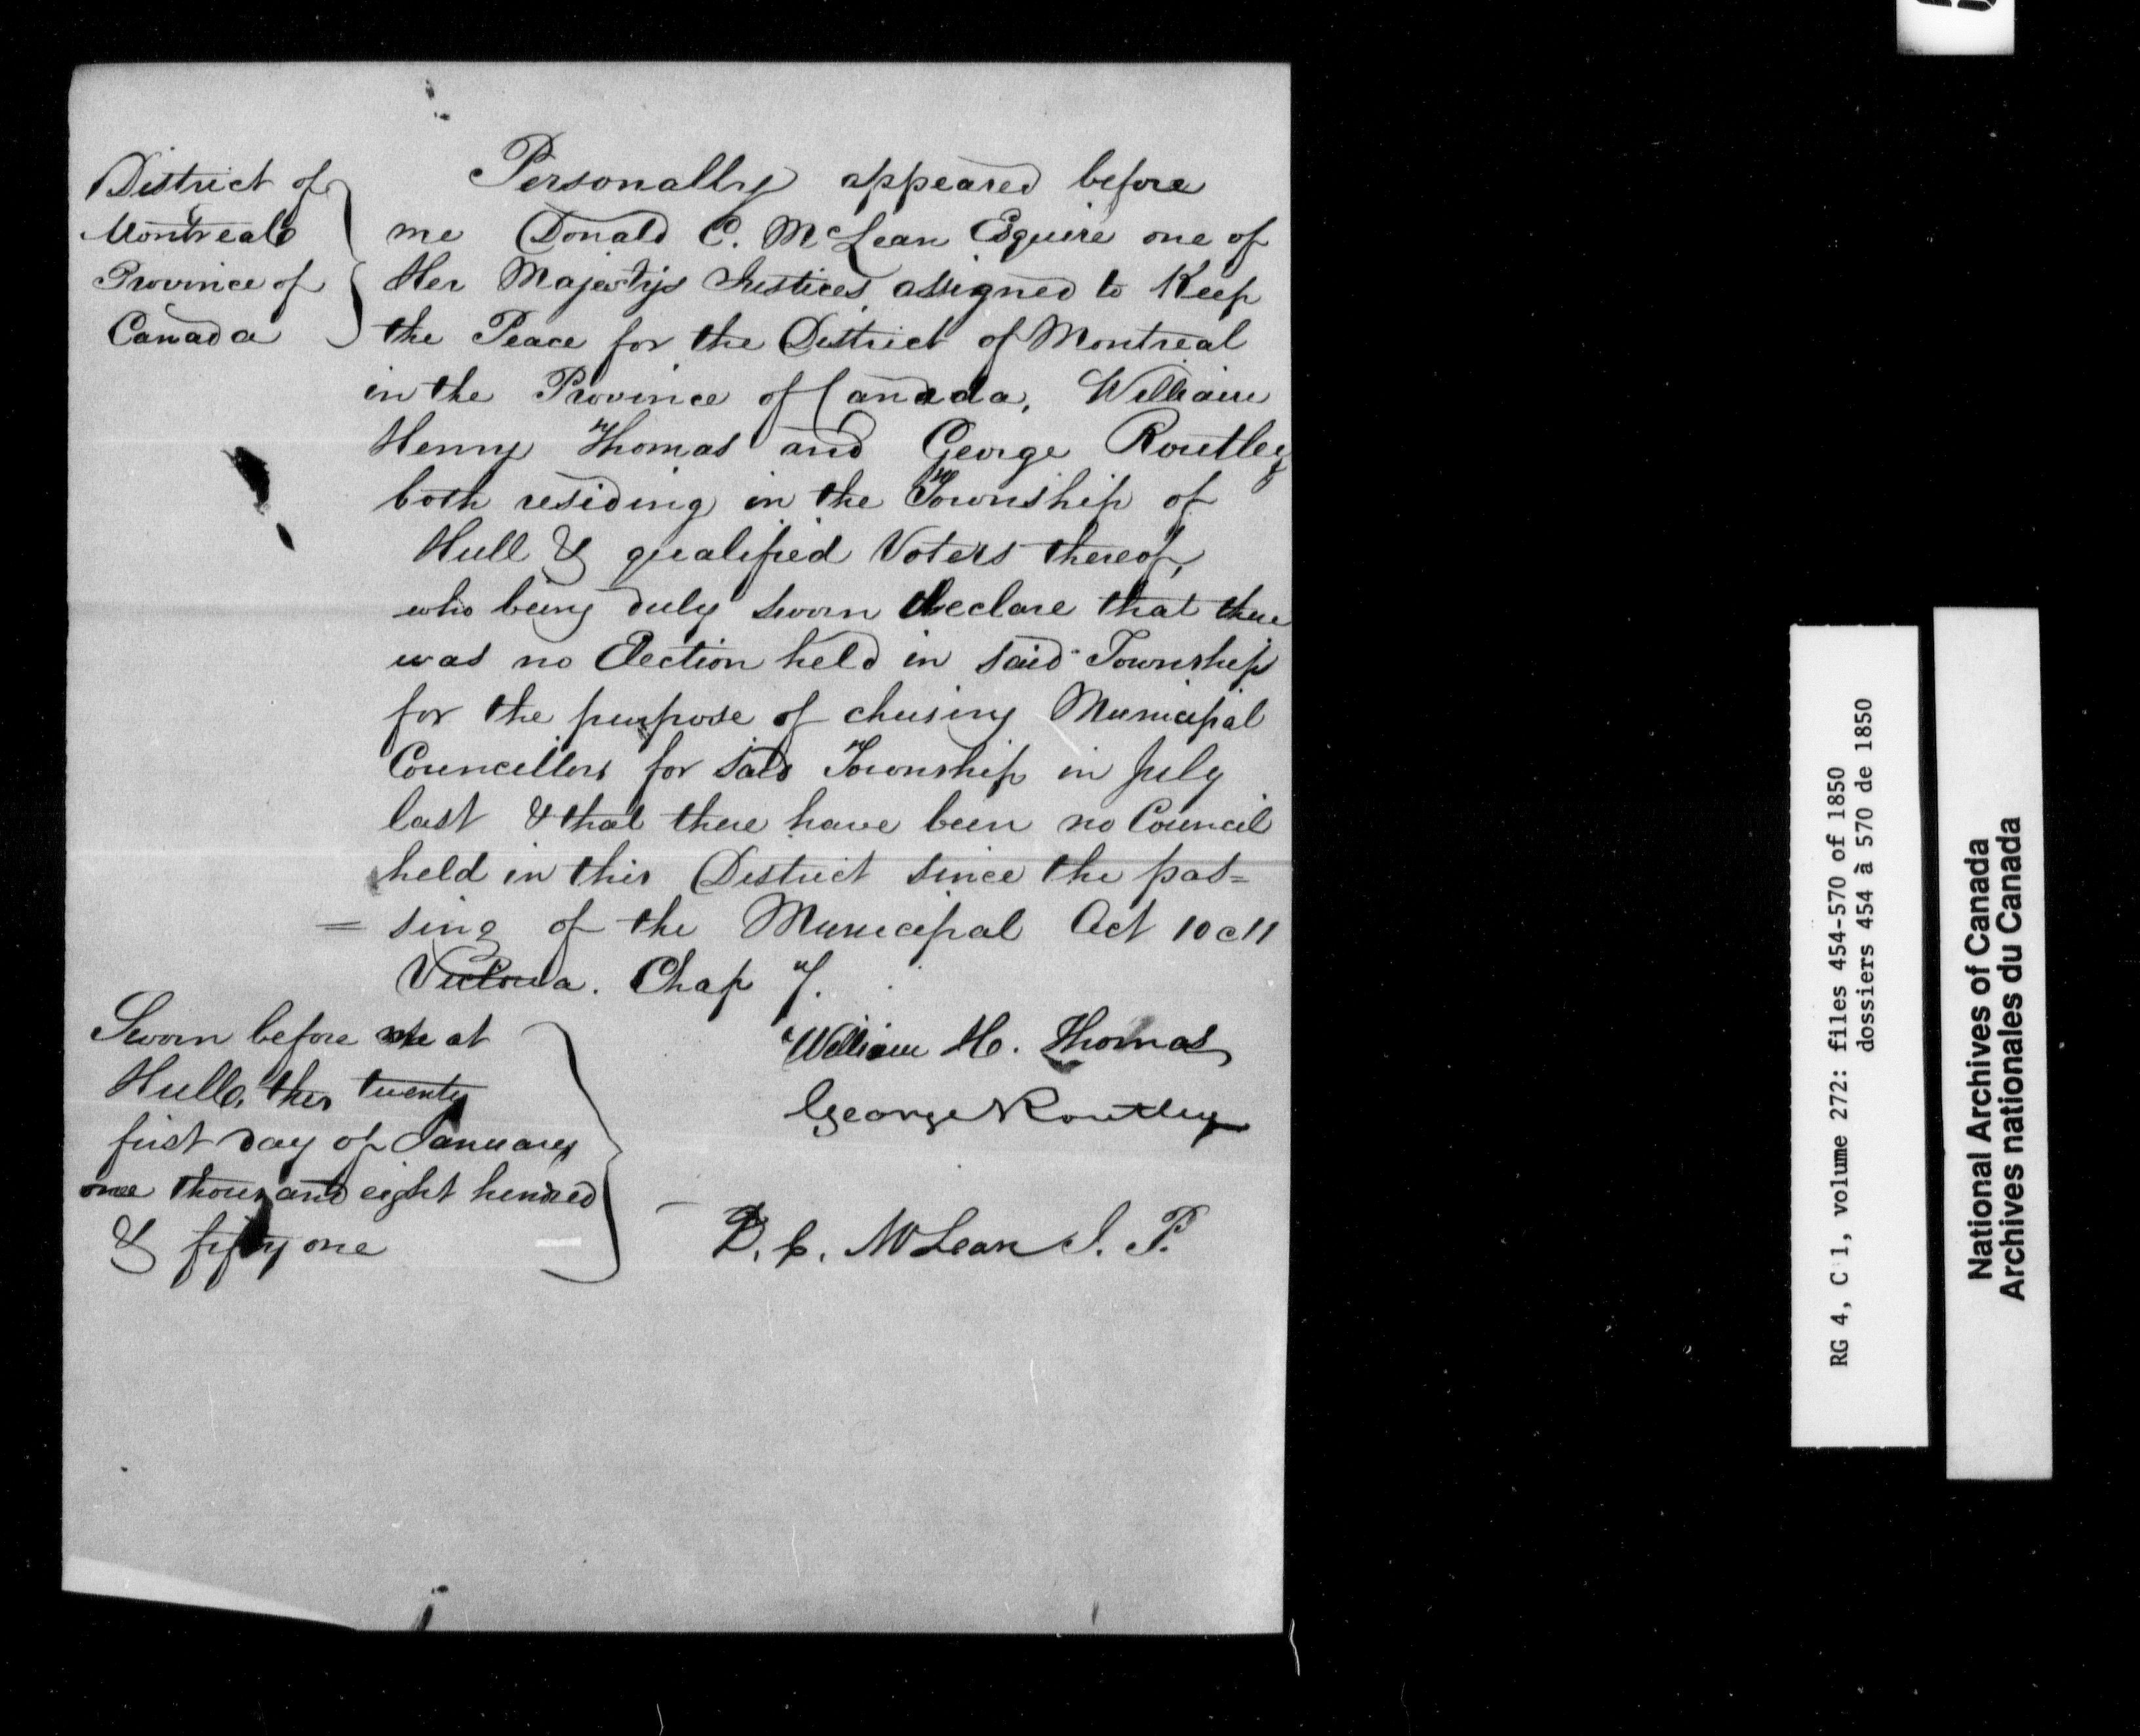 District of
Montreal
Province of
Canada
Personally appeared before
me Donald C. McLean Esquire one of
Her Majestys Justices assigned to Keep
the Peace for the District of Montreal
in the Province of Canada, William
Henry Thomas and George Routley
both residing in the Township of
Hull & qualified Voters thereof,
who being duly sworn declare that there
was no Election held in said Township
for the purpose of chusing Municipal
Councillors for said Township in July
last & that there have been no Council
held in this District since the pas=
= sing of the Municipal Act 10 & 11
Victoria. Chap 7.
Sworn before me at
Hull, this twenty
first day of January
one thousand eight hundred
& fifty one
William H. Thomas
George Routley
D. C. McLean J. P.
RG 4, C 1, volume 272: files 454-570 of 1850
dossiers 454 à 570 de 1850
National Archives of Canada
Archives nationales du Canada